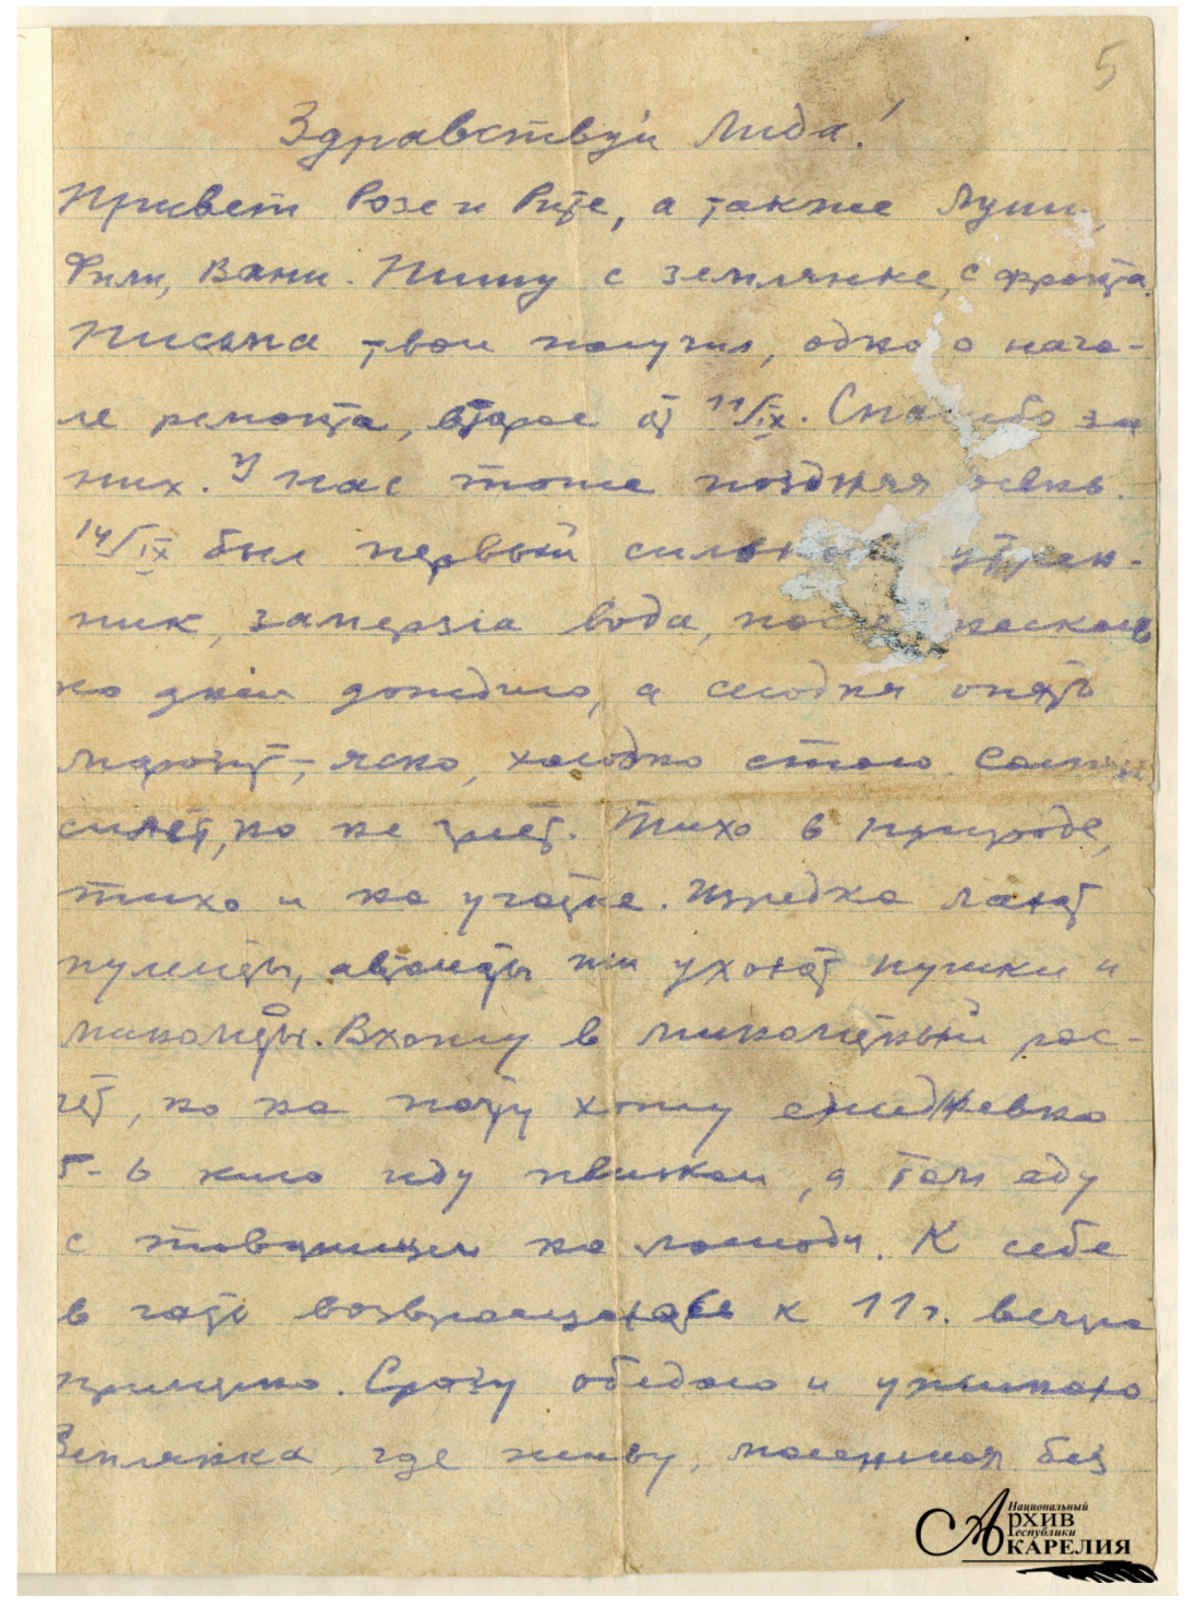 5
Здравствуй Лида!
Привет Розе и Рите, а также Луши,
Фили, Вани. Пишу с землянке, с фронта.
Письма твои получил, одно о нача-
ле ремонта, второе от 11/IX. Спасибо за
них. У нас тоже поздняя осень.
14/IX был первый сильный утрен-
ник, замерзла вода, после несколь
ко дней дождило, а сегодня опять
морозит, ясно, холодно стало. Солнце
сияет, но не греет. Тихо в природе,
тихо и на участке. Изредка лают
пулеметы, автоматы или ухают пушки и
минометы. Вхожу в минометный рас-
чет, но на почту хожу ежедневно
5-6 кило иду пешком, а там еду
с товарищем на лошади. К себе
в часть возвращаюсь к 11 ч. вечера
примерно. Сразу обедаю и ужинаю
Землянка, где живу, маленькая без
Национальный
Архив
Республики
Карелия